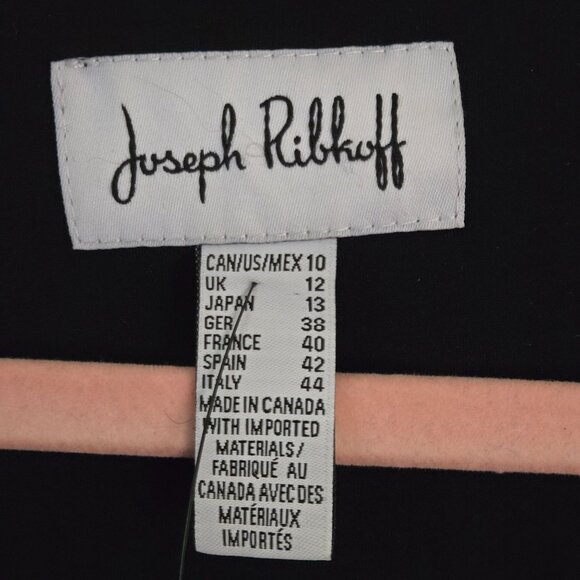 Joseph Ribkoff
CAN/US/MEX 10
UK 12
JAPAN 13
GER 38
FRANCE 40
SPAIN 42
ITALY 44
MADE IN CANADA
WITH IMPORTED
MATERIALS/
FABRIQUÉ AU
CANADA AVEC DES
MATÉRIAUX
IMPORTÉS